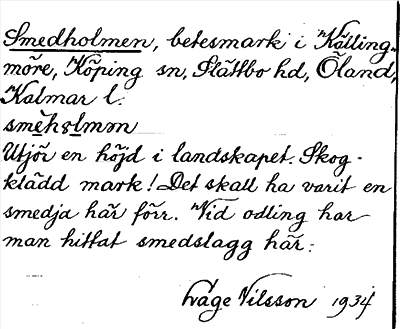 Smedholmen, betesmark i Källing-
möre, Köping sn, Slättbo hd, Öland,
Kalmar l.
smèholmən
Utjör en höjd i landskapet. Skog-
klädd mark! Det skall ha varit en
smedja här förr. Vid odling har
man hittat smedslagg här.
Våge Nilsson 1934